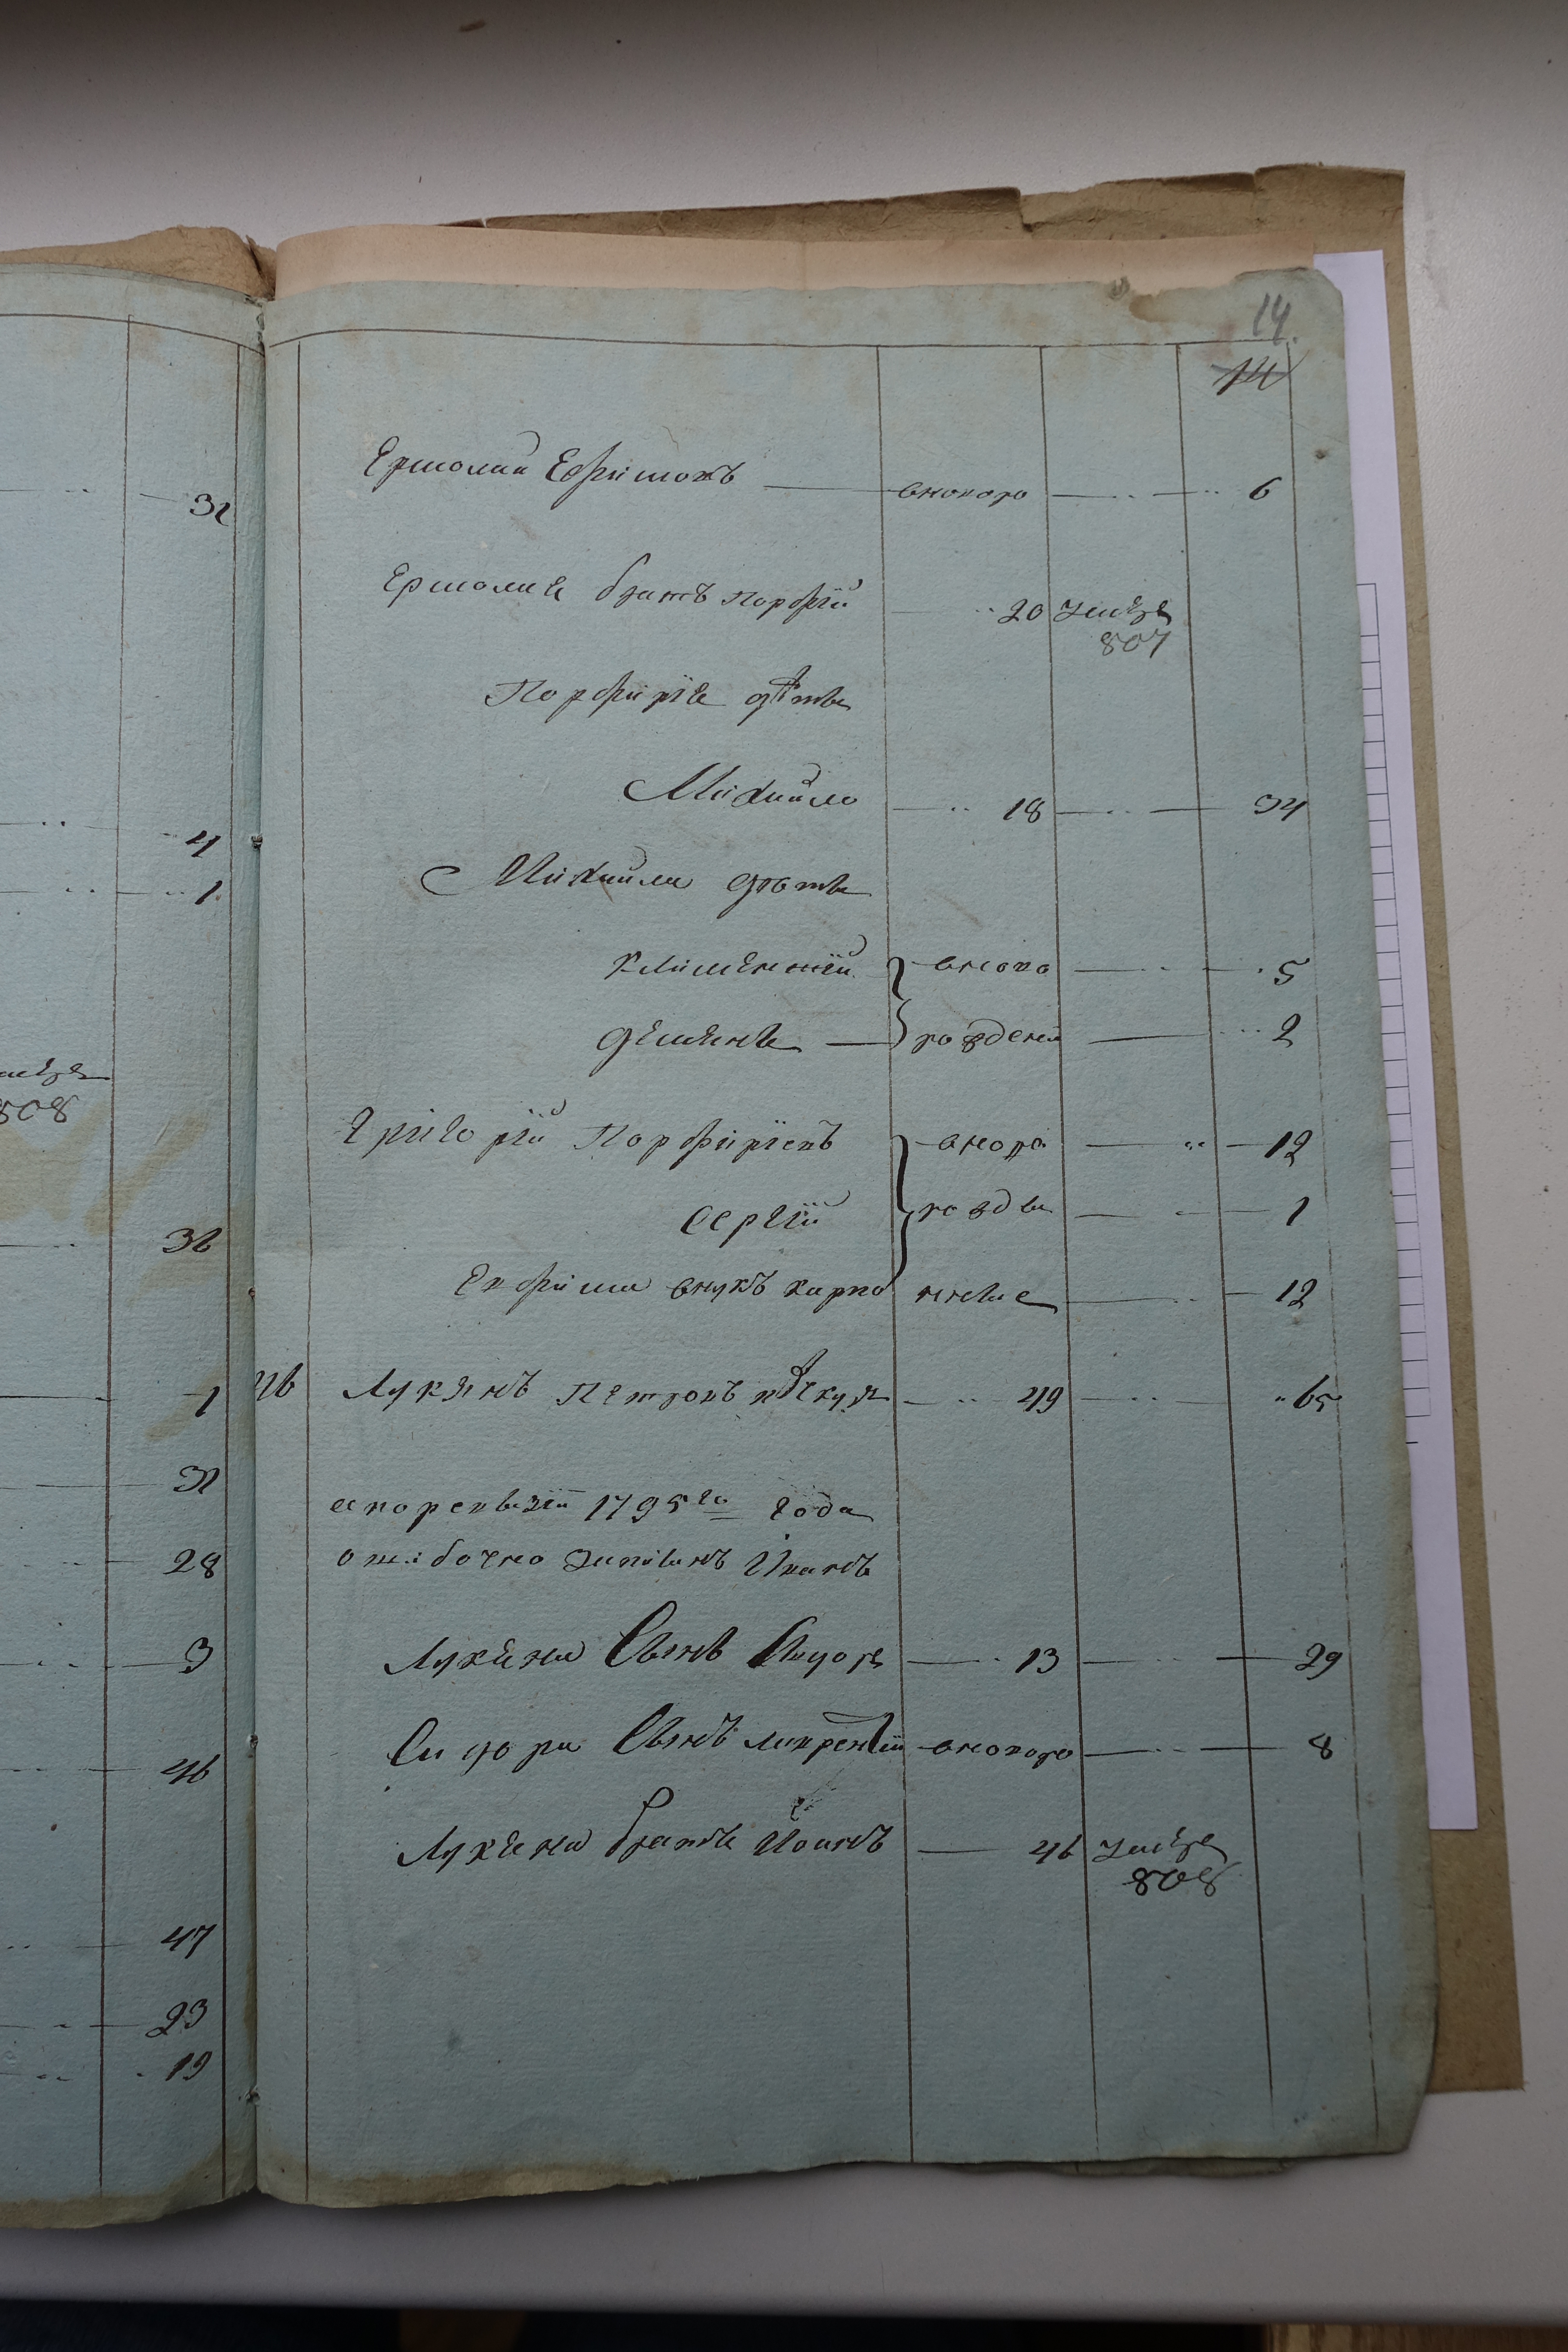 32
4
1
808
36
1
32
28
3
46
47
23
19
14.
14
Ермолаи Ефимовъ вноворо 6
Ермолая братъ порфiй 20 умѣре
807
Порфирiя дѣти
Михайло 18 34
Михайлы дѣти
Климентiй вново 5
Деменъ рожденъ 2
Григорiй Порфирiевъ вноро 12
Сергiй рожды 1
Ефима внукъ карпо нные 12
46 Лукянъ Петровъ 49 65
а по ревизiи 1795го года
ошибочно записанъ Иванъ
Лукяна Сынъ Сидоръ 13 29
Сидора Сынъ лаврентiй вноворо 8
Лукяна братъ Иоанъ 46 умѣре
808